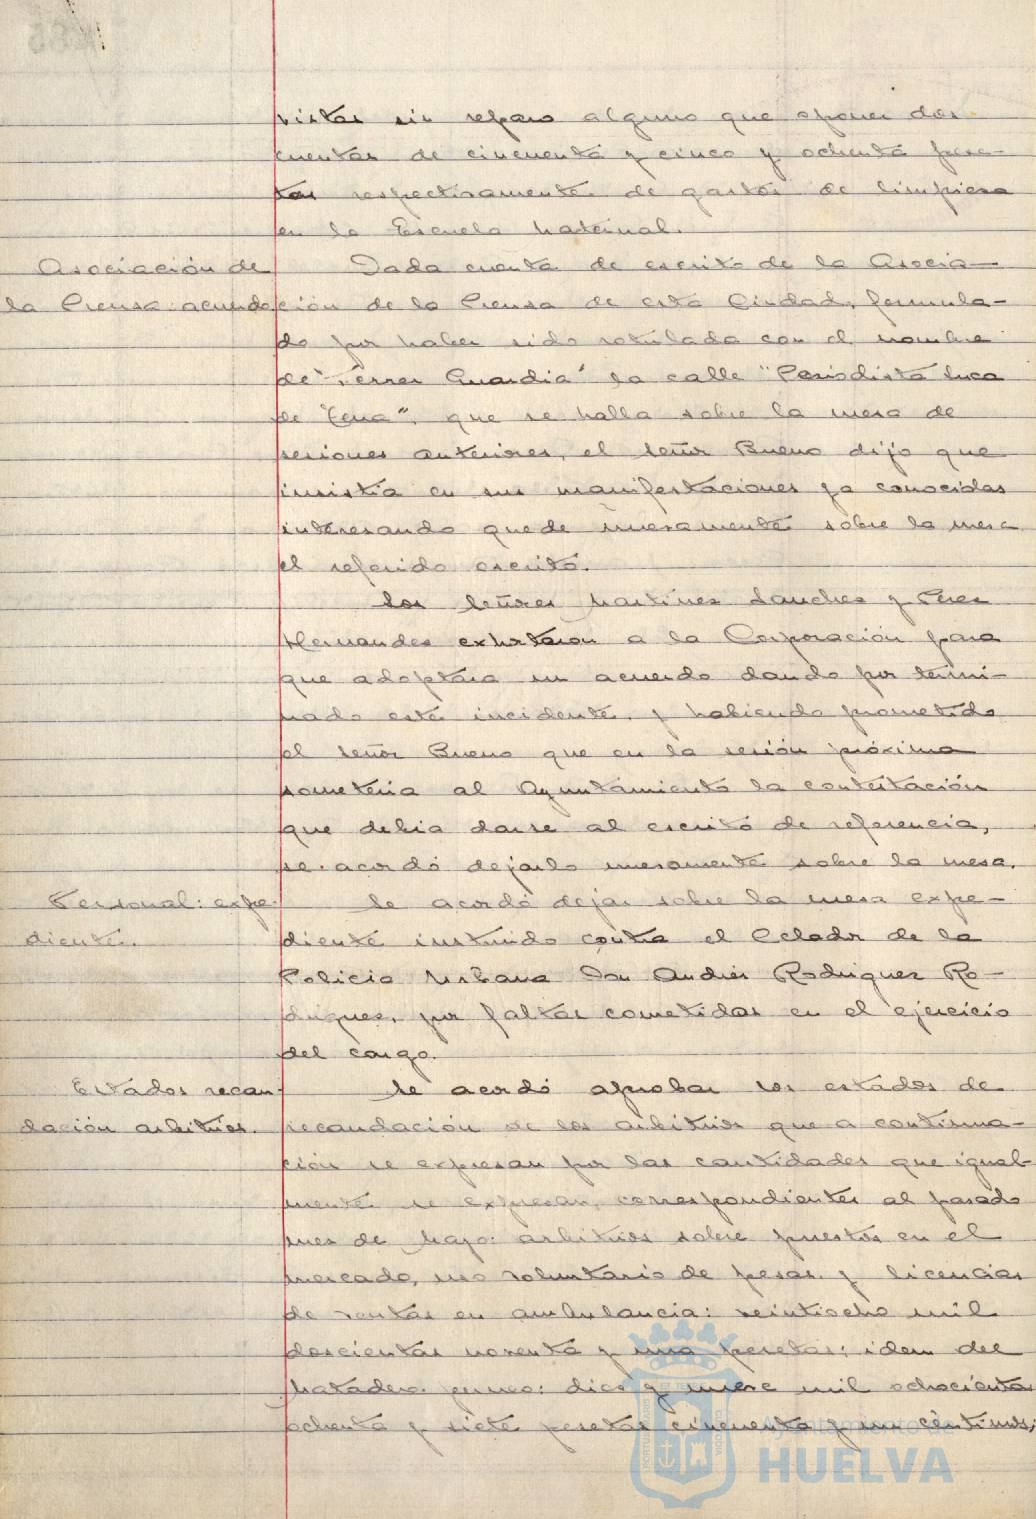 vistas sin reparo alguno que oponer dos
cuentas de cincuenta y cinco y ochenta pese-
tas respectivamente de gastos de limpieza
en la Escuela Maternal.
Asociación de
la Prensa: acuerdo
Dada cuenta de escrito de la Asocia-
ción de la Prensa de esta Ciudad, formula-
do por haber sido rotulada con el nombre
de "Ferrer Guardia" la calle "Periodista Luca
de Tena", que se halla sobre la mesa de
sesiones anteriores, el señor Bueno dijo que
insistía en sus manifestaciones ya conocidas
interesando quede nuevamente sobre la mesa
el referido escrito.
Los señores Martínez Sanchez y Perez
Hernandez exhortaron a la Corporación para
que adoptara un acuerdo dando por termi-
nado este incidente, y habiendo prometido
el señor Bueno que en la sesión próxima
sometería al Ayuntamiento la contestación
que debia darse al escrito de referencia,
se acordó dejarlo nuevamente sobre la mesa.
Personal: expe-
diente.
Se acordó dejar sobre la mesa expe-
diente instruido contra el Celador de la
Policia Urbana Don Andrés Rodriguez Ro-
driguez, por faltas cometidas en el ejercicio
del cargo.
Estados recau-
dación arbitrios.
Se acordó aprobar los estados de
recaudación de los arbitrios que a continua-
ción se expresan por las cantidades que igual-
mente se expresan, correspondientes al pasado
mes de Mayo: arbitrios sobre puestos en el
mercado, uso voluntario de pesas y licencias
de ventas en ambulancia: veintiocho mil
doscientas noventa y una pesetas; idem del
Matadero
diez y nueve mil ochocientas
ochenta y siete pesetas cincuenta y un céntimos;
Ayuntamiento de
HUELVA